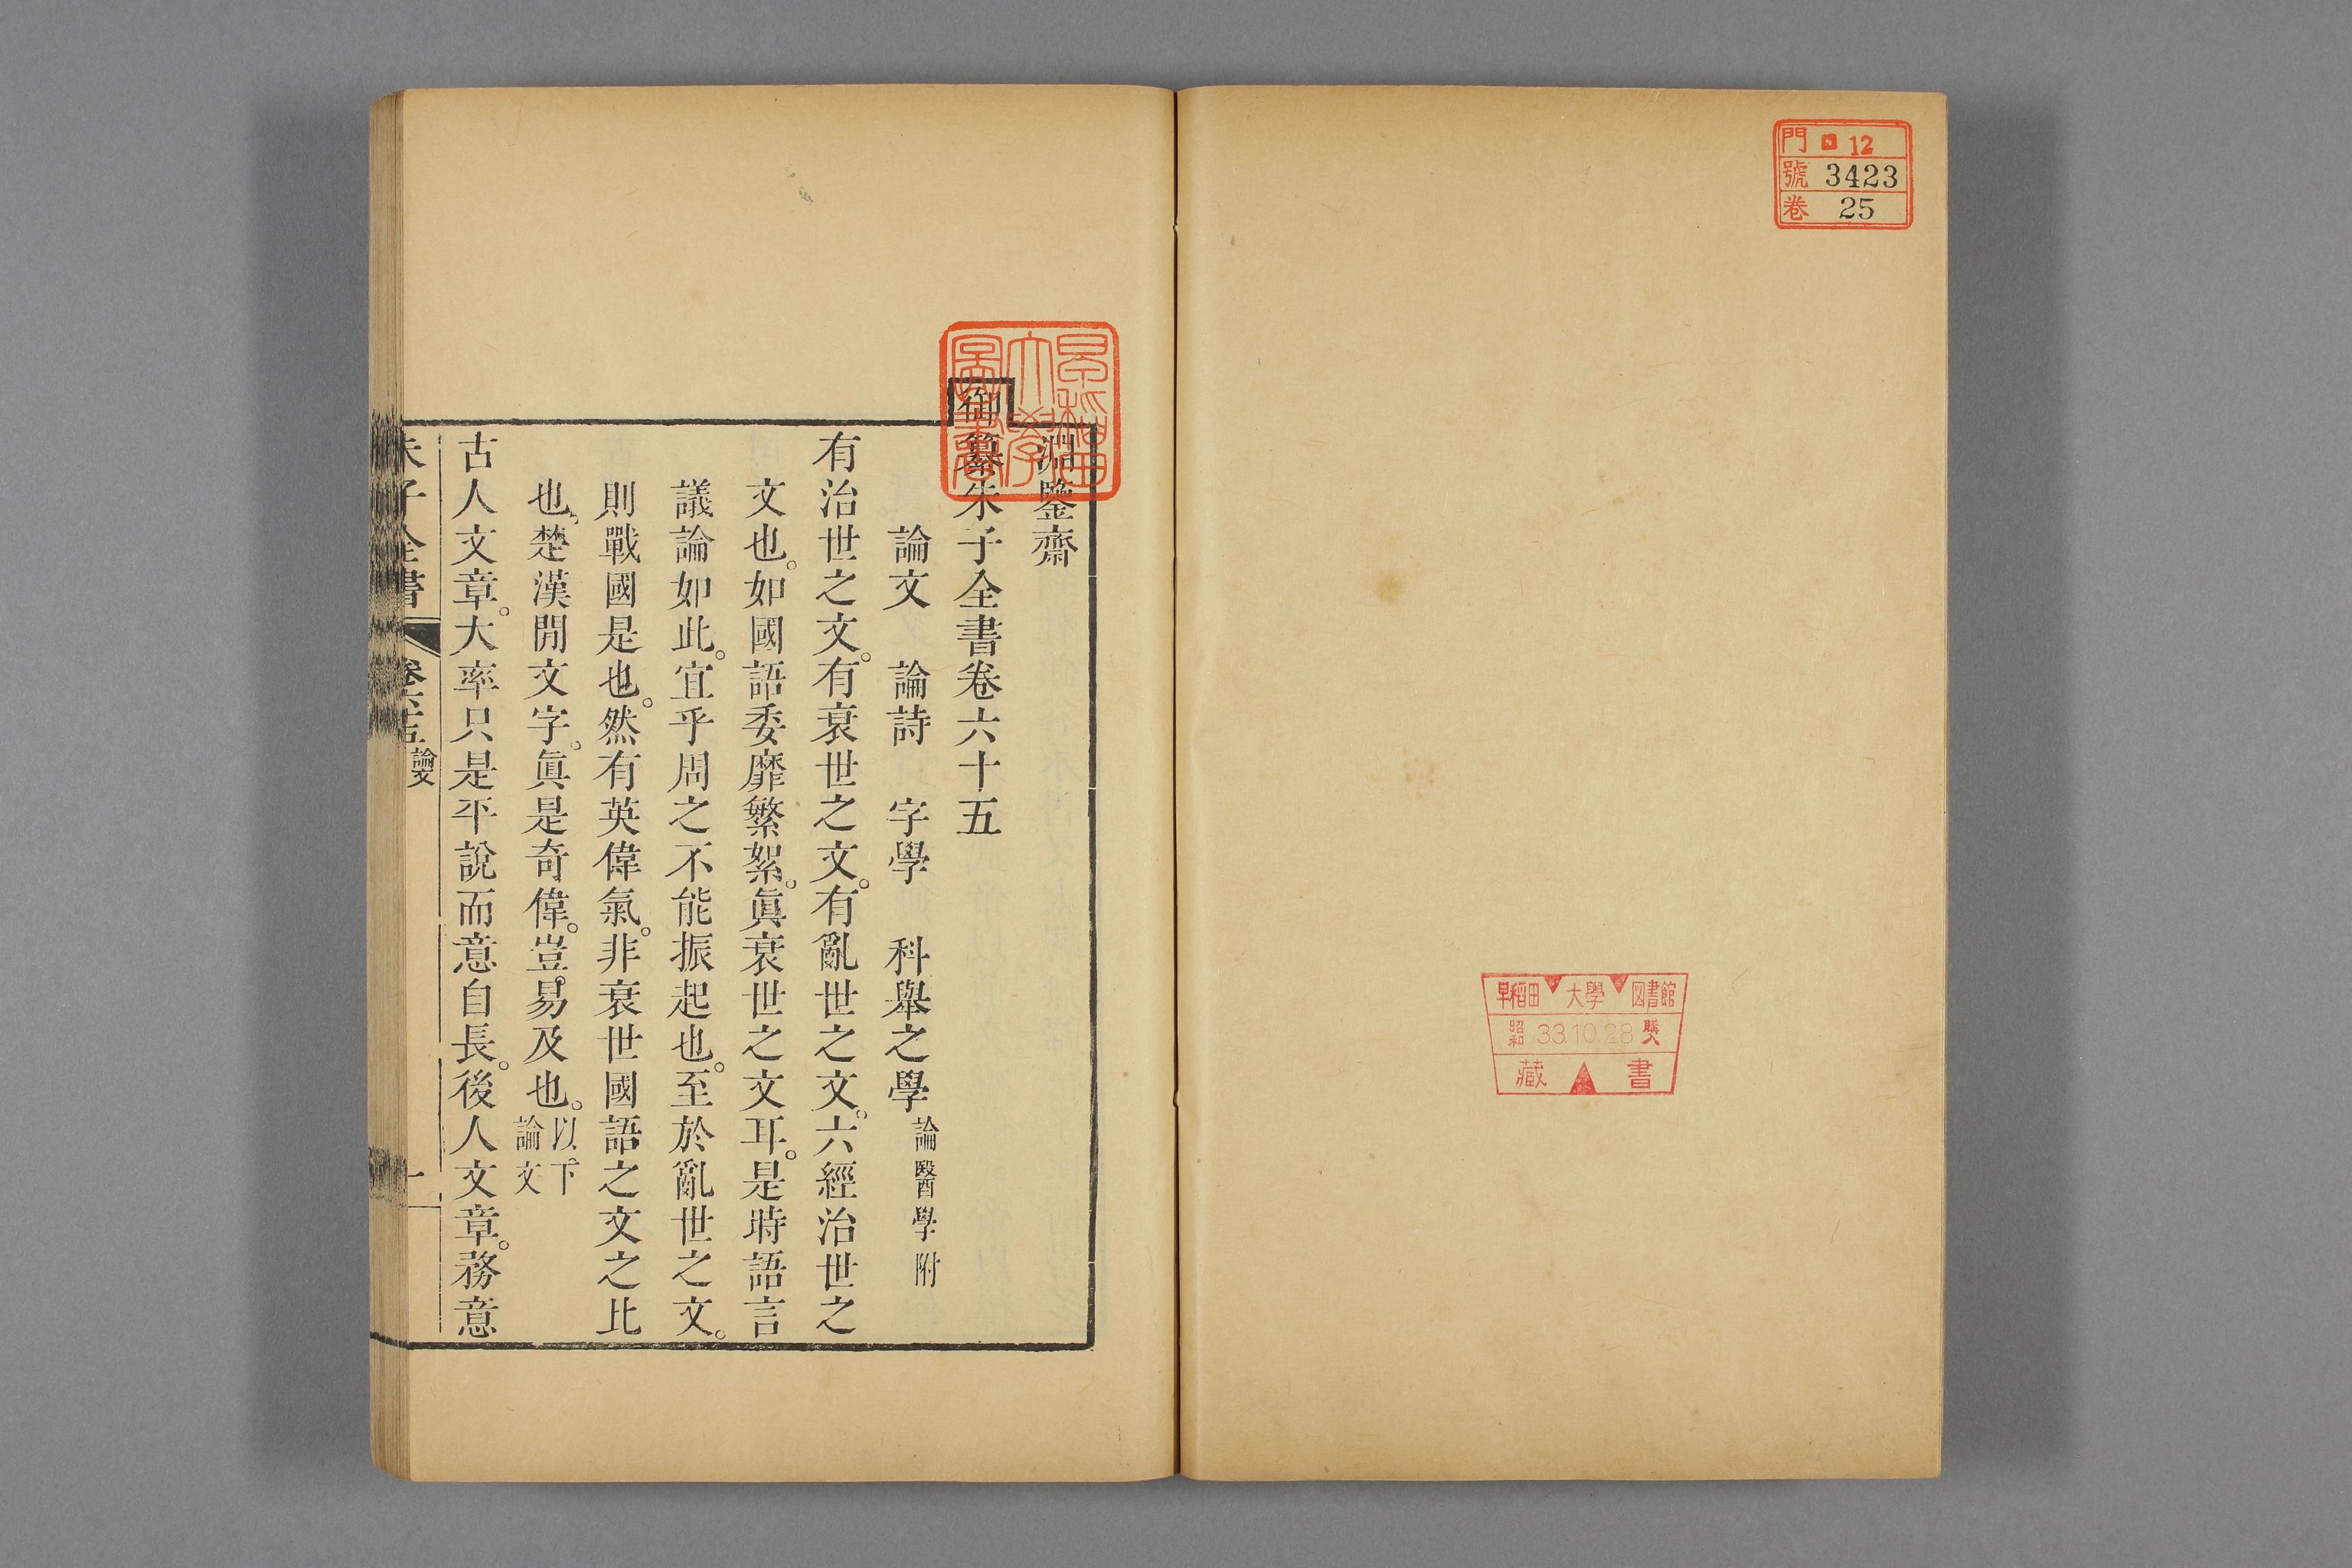 門 ロ 12
號 3423
卷 25
早稲田 大學 図書館
昭和 33.10.28 購入
藏書
早稲田大學圖書
淵鑒齋
御纂朱子全書卷六十五
論文 論詩 字學 科舉之學 論醫學附
有治世之文。有衰世之文。有亂世之文。六經治世之
文也。如國語委靡繁絮。眞衰世之文耳。是時語言
議論如此。宜乎周之不能振起也。至於亂世之文。
則戰國是也。然有英偉氣。非衰世國語之文之比
也。楚漢閒文字。眞是奇偉。豈易及也。以下論文
古人文章。大率只是平說而意自長。後人文章。務意
朱子全書 卷六十五 論文 一